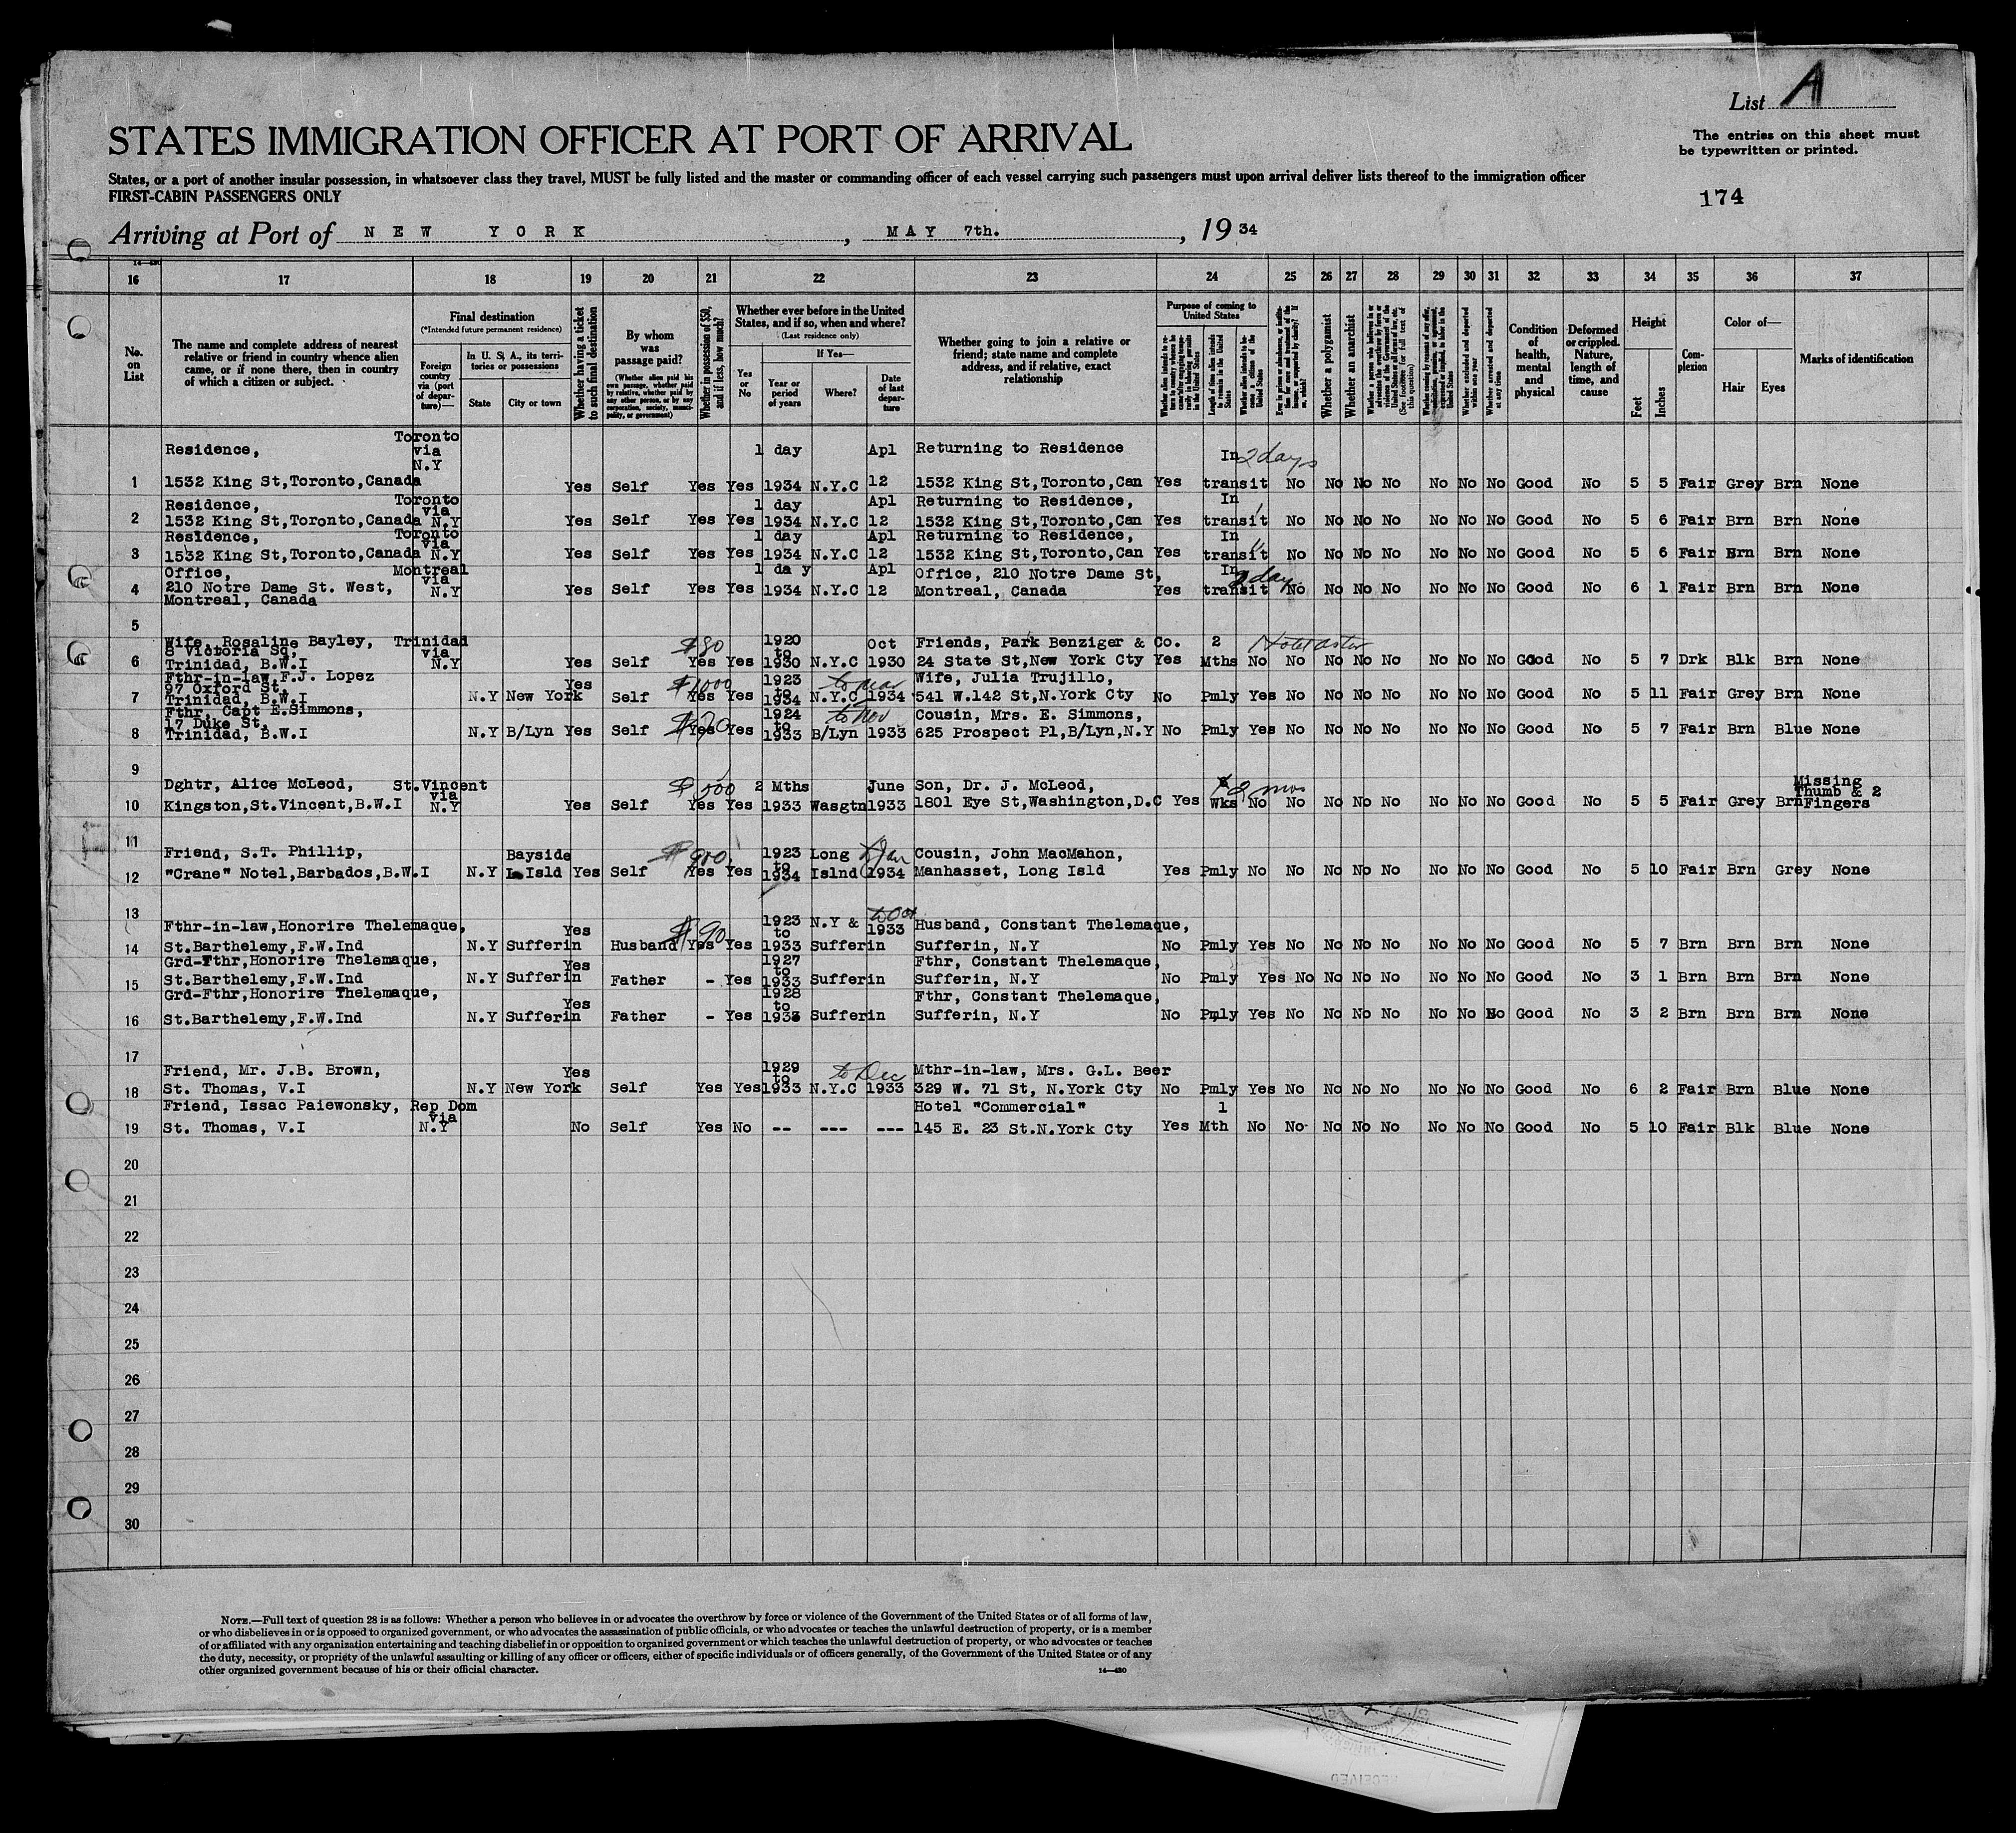 List A
STATES IMMIGRATION OFFICER AT PORT OF ARRIVAL
The entries on this sheet must
be typewritten or printed.
States, or a port of another insular possession, in whatsoever class they travel, MUST be fully listed and the master or commanding officer of each vessel carrying such passengers must upon arrival deliver lists thereof to the immigration officer
FIRST-CABIN PASSENGERS ONLY
174
Arriving at Port of NEW YORK, MAY 7th., 1934
16 17 18 19 20 21 22 23 24 25 26 27 28 29 30 31 32 33 34 35 36 37
No. on List
The name and complete address of nearest relative or friend in country whence alien came, or if none there, then in country of which a citizen or subject.
Final destination
(*Intended future permanent residence)
Foreign country via (port of departure)—
In U. S. A., its territories or possessions
State
City or town
Whether having a ticket to such final destination
By whom was passage paid?
(Whether alien paid his own passage, whether paid by relative, whether paid by any other person, or by any corporation, society, municipality, or government)
Whether in possession of $50, and if less, how much?
Whether ever before in the United States, and if so, when and where?
(Last residence only)
Yes or No
If Yes—
Year or period of years
Where?
Date of last departure
Whether going to join a relative or friend; state name and complete address, and if relative, exact relationship
Purpose of coming to United States
Length of time alien intends to remain in the United States
Whether alien intends to become a citizen of the United States
Whether a polygamist
Whether an anarchist
Whether excluded and deported within one year
Whether arrested and deported at any time
Condition of health, mental and physical
Deformed or crippled. Nature, length of time, and cause
Height
Feet
Inches
Complexion
Color of—
Hair
Eyes
Marks of identification
Residence, Toronto via N.Y 1 day Apl Returning to Residence In 2 days
1 1532 King St,Toronto,Canada Yes Self Yes Yes 1934 N.Y.C 12 1532 King St,Toronto,Can Yes transit No No No No No No No Good No 5 5 Fair Grey Brn None
Residence, Toronto via 1 day Apl Returning to Residence, In
2 1532 King St,Toronto,Canada N.Y Yes Self Yes Yes 1934 N.Y.C 12 1532 King St,Toronto,Can Yes transit No No No No No No No Good No 5 6 Fair Brn Brn None
Residence, Toronto via 1 day Apl Returning to Residence, In
3 1532 King St,Toronto,Canada N.Y Yes Self Yes Yes 1934 N.Y.C 12 1532 King St,Toronto,Can Yes transit No No No No No No No Good No 5 6 Fair Brn Brn None
Office, Montreal via 1 day Apl Office, 210 Notre Dame St, In 2 day
4 210 Notre Dame St. West, N.Y Yes Self Yes Yes 1934 N.Y.C 12 Montreal, Canada Yes transit No No No No No No No Good No 6 1 Fair Brn Brn None
Montreal, Canada
5
Wife, Rosaline Bayley, Trinidad $80 1920 Oct Friends, Park Benziger & Co. 2
8 Victoria Sq, via to
6 Trinidad, B.W.I N.Y Yes Self Yes Yes 1930 N.Y.C 1930 24 State St,New York Cty Yes Mths No No No No No No No No Good No 5 7 Drk Blk Brn None
Fthr-in-law,F.J. Lopez $1000 1923 Wife, Julia Trujillo,
97 Oxford St, Yes to
7 Trinidad, B.W.I N.Y New York Self Yes Yes 1934 N.Y.C 1934 541 W.142 St,N.York Cty No Pmly Yes No No No No No No No Good No 5 11 Fair Grey Brn None
Fthr, Capt E.Simmons, 1924 to Nov Cousin, Mrs. E. Simmons,
17 Duke St, to
8 Trinidad, B.W.I N.Y B/Lyn Yes Self Yes Yes 1933 B/Lyn 1933 625 Prospect Pl,B/Lyn,N.Y No Pmly Yes No No No No No No No Good No 5 7 Fair Brn Blue None
9
Dghtr, Alice McLeod, St.Vincent via 2 Mths June Son, Dr. J. McLeod, 2 mos Missing Thumb & 2
10 Kingston,St.Vincent,B.W.I N.Y Yes Self Yes Yes 1933 Wasgtn 1933 1801 Eye St,Washington,D.C Yes Wks No No No No No No No No Good No 5 5 Fair Grey Brn Fingers
11
Friend, S.T. Phillip, Bayside 1923 Long Jan Cousin, John MacMahon,
12 "Crane" Notel,Barbados,B.W.I N.Y L Isld Yes Self Yes Yes to 1934 Islnd 1934 Manhasset, Long Isld Yes Pmly No No No No No No No No Good No 5 10 Fair Brn Grey None
13
Fthr-in-law,Honorire Thelemaque, Yes $90 1923 N.Y & to Oct 1933 Husband, Constant Thelemaque,
14 St.Barthelemy,F.W.Ind N.Y Sufferin Husband Yes Yes to 1933 Sufferin Sufferin, N.Y No Pmly Yes No No No No No No No Good No 5 7 Brn Brn Brn None
Grd-Fthr,Honorire Thelemaque, Yes 1927 to Fthr, Constant Thelemaque,
15 St.Barthelemy,F.W.Ind N.Y Sufferin Father - Yes 1933 Sufferin Sufferin, N.Y No Pmly Yes No No No No No No No Good No 3 1 Brn Brn Brn None
Grd-Fthr,Honorire Thelemaque, Yes 1928 to Fthr, Constant Thelemaque,
16 St.Barthelemy,F.W.Ind N.Y Sufferin Father - Yes 1933 Sufferin Sufferin, N.Y No Pmly Yes No No No No No No No Good No 3 2 Brn Brn Brn None
17
Friend, Mr. J.B. Brown, Yes 1929 to to Dec Mthr-in-law, Mrs. G.L. Beer
18 St. Thomas, V.I N.Y New York Self Yes Yes 1933 N.Y.C 1933 329 W. 71 St, N.York Cty No Pmly Yes No No No No No No No Good No 6 2 Fair Brn Blue None
Friend, Issac Paiewonsky, Rep Dom via Hotel "Commercial" 1
19 St. Thomas, V.I N.Y No Self Yes No -- --- --- 145 E. 23 St.N.York Cty Yes Mth No No No No No No No No Good No 5 10 Fair Blk Blue None
20
21
22
23
24
25
26
27
28
29
30
NOTE.—Full text of question 28 is as follows: Whether a person who believes in or advocates the overthrow by force or violence of the Government of the United States or of all forms of law,
or who disbelieves in or is opposed to organized government, or who advocates the assassination of public officials, or who advocates or teaches the unlawful destruction of property, or is a member
of or affiliated with any organization entertaining and teaching disbelief in or opposition to organized government or which teaches the unlawful destruction of property, or who advocates or teaches
the duty, necessity, or propriety of the unlawful assaulting or killing of any officer or officers, either of specific individuals or of officers generally, of the Government of the United States or of any
other organized government because of his or their official character.
14—430
RECEIVED